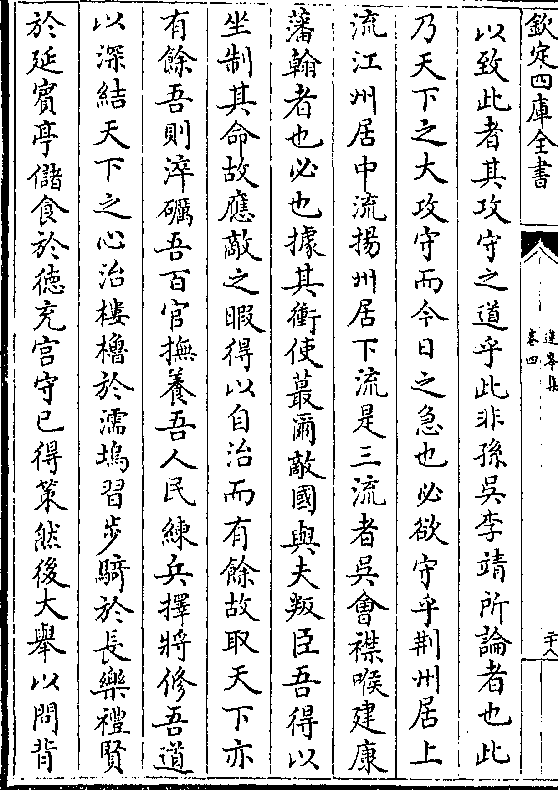 欽定四庫全書
蓮峰集
卷四
以致此者其攻守之道乎此非孫吳李靖所論者也此
乃天下之大攻守而今日之急也必欲守乎荆州居上
流江州居中流揚州居下流是三流者吳會襟喉建康
藩翰者也必也據其衝使蕞爾敵國與夫叛臣吾得以
坐制其命故應敵之暇得以自治而有餘故取天下亦
有餘吾則淬礪吾百官撫養吾人民練兵擇將修吾道
以深結天下之心治樓櫓於濡塢習步騎於長樂禮賢
於延賓亭儲食於德充宫守已得策然後大舉以問背